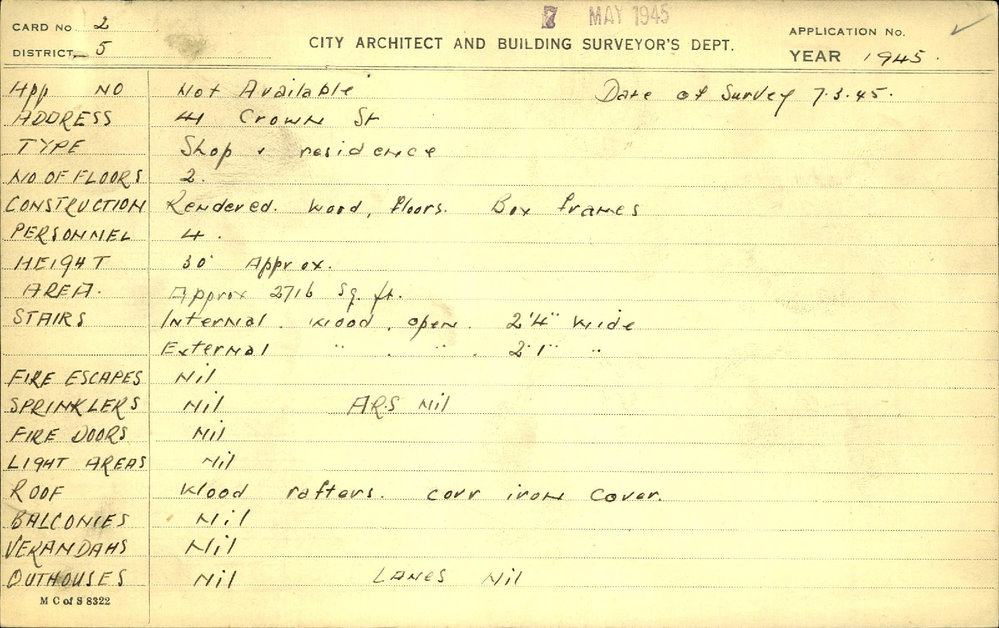 7 MAY 1945
CARD No 2
APPLICATION No.
DISTRICT 5
CITY ARCHITECT AND BUILDING SURVEYOR'S DEPT.
YEAR 1945.
App NO Not Available Date of Survey 7.3.45.
ADDRESS 41 Crown St
TYPE Shop & residence
NO OF FLOORS 2.
CONSTRUCTION Rendered. Wood, floors. Box frames
PERSONNEL 4.
HEIGHT 30' Approx.
AREA. Approx 2716 Sq. ft.
STAIRS Internal. Wood, open. 2'4" Wide
External " . " . 2'1" "
FIRE ESCAPES Nil
SPRINKLERS Nil ARS Nil
FIRE DOORS Nil
LIGHT AREAS Nil
ROOF Wood rafters. corr iron cover.
BALCONIES Nil
VERANDAHS Nil
OUTHOUSES Nil LANES Nil
M C of S 8322